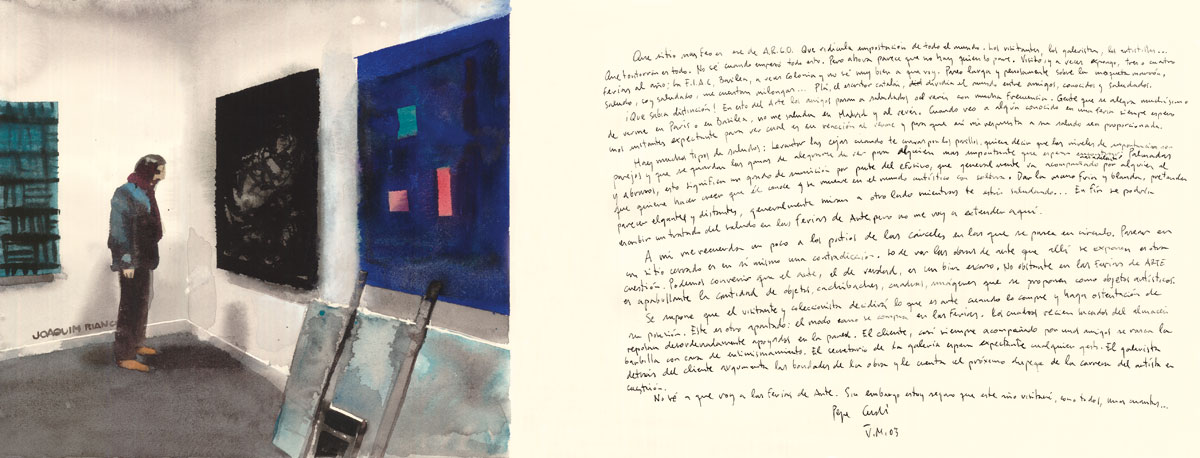 JOAQUIM
Que sitio más feo es ese de A.R.C.O. Que ridícula impostación de todo el mundo. Los visitantes, los galeristas, los artistillas...
Que tostorrón es todo. No sé cuando empezó todo esto. Pero ahora parece que no hay quien lo pare. Visito, y a veces expongo, tres o cuatro
ferias al año: la F.I.A.C, Basilea, a veces Colonia y no sé muy bien a que voy. Paseo larga y penosamente sobre la moqueta marrón,
saludo, soy saludado, me cuentan milongas... Plá, el escritor catalán, dividía el mundo entre amigos, conocidos y saludados.
¡Que sabia distinción! En esto del Arte los amigos pasan a saludados y al revés con mucha frecuencia. Gente que se alegra muchísimo
de verme en París o en Basilea, no me saludan en Madrid y al revés. Cuando veo a algún conocido en una feria siempre espero
unos instantes expectante para ver cual es su reacción al verme y para que así mi respuesta a su saludo sea proporcionada.
Hay muchos tipos de saludos: Levantar las cejas cuando te cruzas por los pasillos, quiere decir que los niveles de importancia son
parejos y que se guardan las ganas de alegrarse de ver para alguien mas importante que esperan encontrarse. Palmadas
y abrazos, esto significa un grado de sumisión por parte del efusivo, que generalmente va acompañado por alguien al
que quiere hacer creer que él conoce y se mueve en el mundo artístico con soltura. Dar la mano fría y blanda, pretenden
parecer elegantes y distantes, generalmente miran a otro lado mientras te están saludando... En fin se podría
escribir un tratado del saludo en las Ferias de Arte, pero no me voy a extender aquí.
A mi me recuerdan un poco a los patios de las cárceles en los que se pasea en círculo. Pasear en
un sitio cerrado es en si mismo una contradicción. Lo de ver las obras de arte que allí se exponen es otra
cuestión. Podemos convenir que el arte, el de verdad, es un bien escaso. No obstante en las Ferias de ARTE
es apabullante la cantidad de objetos, cachivaches, cuadros, imágenes que se proponen como objetos artísticos.
Se supone que el visitante y coleccionista decidirá lo que es arte cuando lo compre y haga ostentación de
su posesión. Este es otro apartado: el modo como se compra en las Ferias. Los cuadros recién sacados del almacén
reposan desordenadamente apoyados en la pared. El cliente, casi siempre acompañado por unos amigos se rasca la
barbilla con cara de ensimismamiento. El secretario de la galería espera expectante cualquier gesto. El galerista
detrás del cliente argumenta las bondades de la obra y le cuenta el próximo despegue de la carrera del artista en
cuestión.
No sé a que voy a las Ferias de Arte. Sin embargo estoy seguro que este año visitaré, como todos, unas cuantas...
Pepe
V.M.03